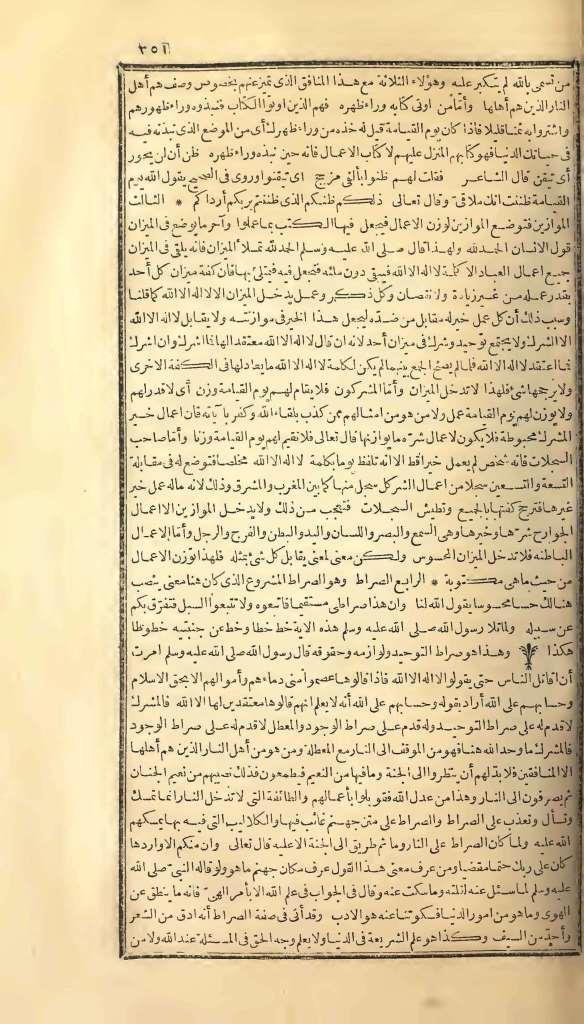 ٣٥٦
من تسمى بالله لم يتكبر عليه وهؤلاء الثلاثة مع هذا المنافق الذى تميز عنهم بخصوص وصف هم أهل
النار الذين هم أهلها وأما من أوتى كتابه وراء ظهره فهم الذين أوتوا الكتاب فنبذوه وراء ظهورهم
واشتروا به ثمنا قليلا فاذا كان يوم القيامة قيل له خذه من وراء ظهرك أى من الموضع الذى نبذته فيه
فى حياتك الدنيا فهو كتابهم المنزل عليهم لا كتاب الاعمال فانه حين نبذه وراء ظهره ظن أن لن يحور
أى تيقن قال الشاعر فقلت لهم ظنوا بألفى مدجج أى تيقنوا وروى فى الصحيح يقول الله يوم
القيامة ظننت انك ملاقى وقال تعالى ذلكم ظنكم الذى ظننتم بربكم أرداكم * الثالث
الموازين فتوضع الموازين لوزن الاعمال فيجعل فيها الكتب بما عملوا وآخر ما يوضع فى الميزان
قول الانسان الحمد لله ولهذا قال صلى الله عليه وسلم الحمد لله تملأ الميزان فانه يلقى فى الميزان
جميع اعمال العباد الا كلمة لا اله الا الله فيبقى دون ملئه فتجعل فيه فيمتلئ بها فان كفة ميزان كل أحد
بقدر عمله من غير زيادة ولا نقصان وكل ذكر وعمل يدخل الميزان الا لا اله الا الله كما قلنا
وسبب ذلك أن كل عمل خير له مقابل من ضده ليجعل هذا الخير فى موازنته ولا يقابل لا اله الا الله
الا الشرك ولا يجتمع توحيد وشرك فى ميزان أحد لانه ان قال لا اله الا الله معتقدا لها فما اشرك وان اشرك
فما اعتقد لا اله الا الله فلما لم يصح الجمع بينهما لم يكن لكلمة لا اله الا الله ما يعادلها فى الكفة الاخرى
ولا يرجحها شئ فلهذا لا تدخل الميزان وأما المشركون فلا يقام لهم يوم القيامة وزن أى لا قدر لهم
ولا يوزن لهم يوم القيامة عمل ولا من هو من امثالهم ممن كذب بلقاء الله وكفر بآياته فان اعمال خير
المشرك محبوطة فلا يكون لاعمال شره ما يوازنها قال تعالى فلا نقيم لهم يوم القيامة وزنا وأما صاحب
السجلات فانه شخص لم يعمل خيرا قط الا انه تلفظ يوما بكلمة لا اله الا الله مخلصا فتوضع له فى مقابلة
التسعة والتسعين سجلا من اعمال الشر كل سجل منها كما بين المغرب والمشرق وذلك لانه ماله عمل خير
غيرها فترجح كفتها بالجميع وتطيش السجلات فيتعجب من ذلك ولا يدخل الموازين الا اعمال
الجوارح شرها وخيرها وهى السمع والبصر واللسان واليد والبطن والفرج والرجل وأما الاعمال
الباطنة فلا تدخل الميزان المحسوس ولكن معنى لمعنى يقابل كل شئ بمثله فلهذا توزن الاعمال
من حيث ما هى مكتوبة * الرابع الصراط وهو الصراط المشروع الذى كان هنا معنى ينصب
هنالك حسا محسوسا يقول الله لنا وان هذا صراطى مستقيما فاتبعوه ولا تتبعوا السبل فتفرق بكم
عن سبيله ولما تلا رسول الله صلى الله عليه وسلم هذه الآية خط خطا وخط عن جنبتيه خطوطا
هكذا وهذا هو صراط التوحيد ولوازمه وحقوقه قال رسول الله صلى الله عليه وسلم امرت
أن اقاتل الناس حتى يقولوا لا اله الا الله فاذا قالوها عصموا منى دماءهم وأموالهم الا بحق الاسلام
وحسابهم على الله أراد بقوله وحسابهم على الله أنه لا يعلم انهم قالوها معتقدين لها الا الله فالمشرك
لا قدم له على صراط التوحيد وله قدم على صراط الوجود والمعطل لا قدم له على صراط الوجود
فالمشرك ما وحد الله هنا فهو من الموقف الى النار مع المعطلة ومن هو من أهل النار الذين هم أهلها
الا المنافقين فلا بد لهم أن ينظروا الى الجنة وما فيها من النعيم فيطمعون فذلك نصيبهم من نعيم الجنان
ثم يصرفون الى النار وهذا من عدل الله فقوبلوا بأعمالهم والطائفة التى لا تدخل النار انما تمسك
وتسأل وتعذب على الصراط والصراط على متن جهنم غائب فيها والكلاليب التى فيه بها يمسكهم
الله عليه ولما كان الصراط على النار وما ثم طريق الى الجنة الا عليه قال تعالى وان منكم الا واردها
كان على ربك حتما مقضيا ومن عرف معنى هذا القول عرف مكان جهنم ما هو ولو قاله النبى صلى الله
عليه وسلم لما سئل عنه لقلته وما سكت عنه وقال فى الجواب فى علم الله الا بأمر الهى فانه ما ينطق عن
الهوى وما هو من امور الدنيا فسكوتنا عنه هو الادب وقد أتى فى صفة الصراط أنه ادق من الشعر
وأحد من السيف وكذا هو علم الشريعة فى الدنيا ولا يعلم وجه الحق فى المسئلة عند الله ولا من